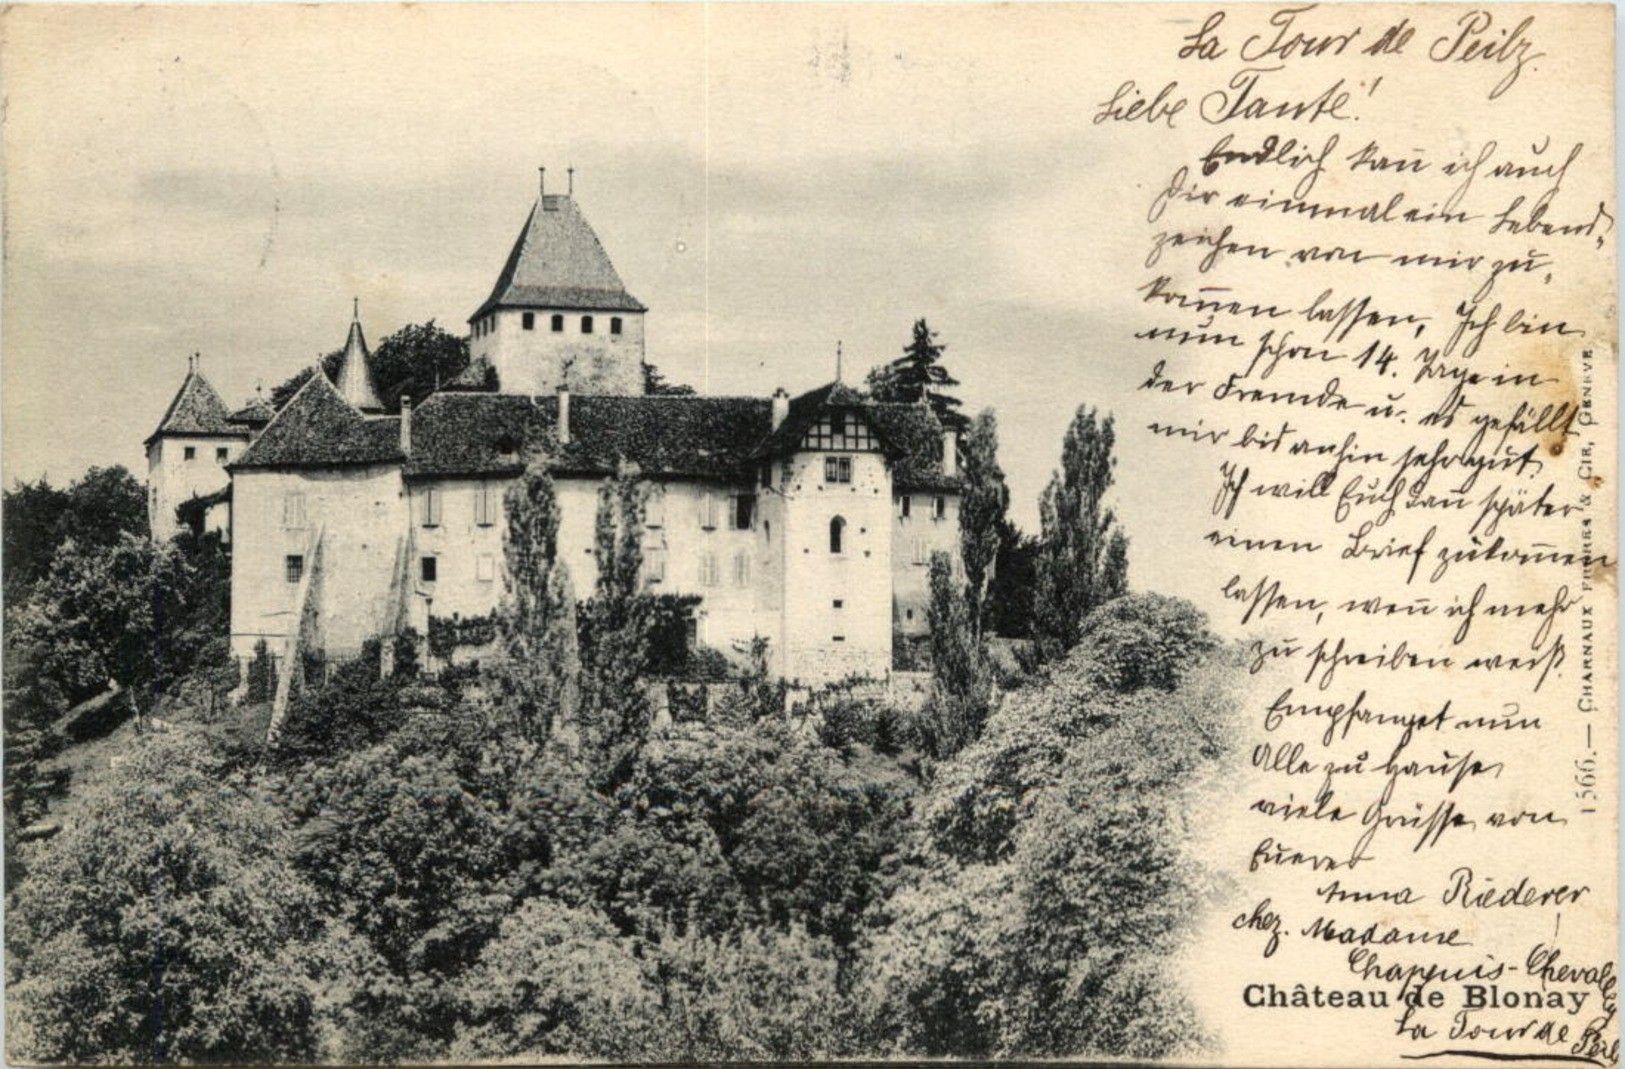 La Tour de Peilz.
Liebe Tante!
Endlich kan̄ ich auch
Dir einmal ein Lebens-
zeichen von mir zu-
kom̄en lassen, Ich bin
nun schon 14. Tage in
der Fremde u. es gefällt
mir bis anhin sehr gut.
Ich will Euch dan̄ später
einen Brief zukom̄en
lassen, wen̄ ich mehr
zu schreiben weiß.
Empfanget nun
Alle zu Hause
viele Grüsse von
Eurer
Anna Riederer
chez. Madame
Chappuis-Chevalley
La Tour de Peilz
Château de Blonay
1566. — CHARNAUX FRÈRES & CIE, GENÈVE